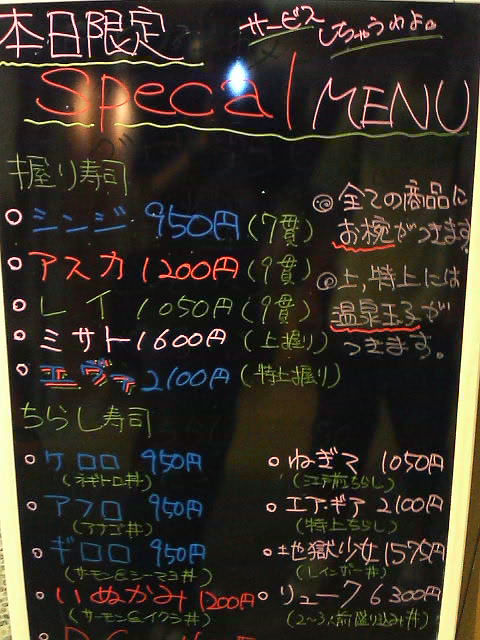 本日限定
サービスしちゃうわよ。
Specal MENU
握り寿司
シンジ 950円 (7貫)
アスカ 1200円 (9貫)
レイ 1050円 (9貫)
ミサト 1600円 (上握り)
エヴァ 2100円 (特上握り)
◎全ての商品に
お椀がつきます。
◎上,特上には
温泉玉子が
つきます。
ちらし寿司
ケロロ 950円
(ネギトロ丼)
アフロ 950円
(アナゴ丼)
ギロロ 950円
(サーモン&シーマヨ丼)
いぬかみ 1200円
(サーモン&イクラ丼)
ねぎま 1050円
(江戸前ちらし)
エア・ギア 2100円
(特上ちらし)
地獄少女 1575円
(レインボー丼)
リューク 6300円
(2~3人前盛り込み丼)